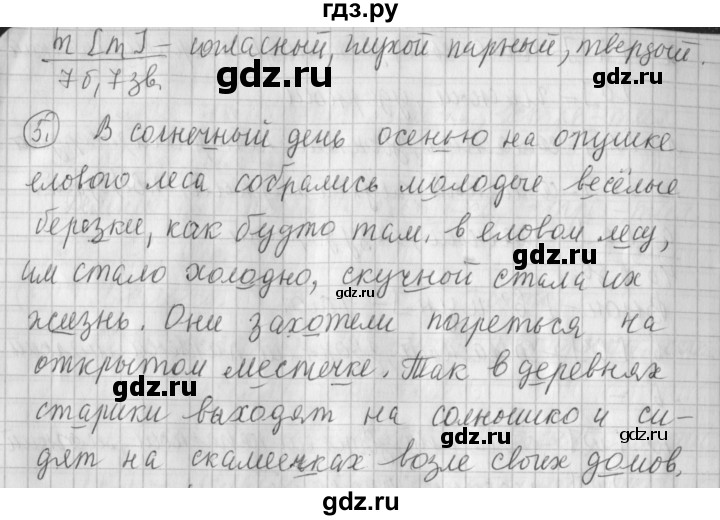 гдз.ру
т [т] - согласный, глухой парный, твердый.
7б, 7 зв.
gdz.ru gdz.ru
5. В солнечный день осенью на опушке
елового леса собрались молодые весёлые
березки, как будто там, в еловом лесу,
gdz.ru
им стало холодно, скучной стала их
gdz.ru
жизнь. Они захотели погреться на
открытом местечке. Так в деревнях
gdz.ru
старики выходят на солнышко и си-
gdz.ru
дят на скамеенках возле своих домов,
gdz.ru